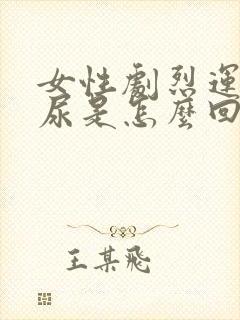 女性劇烈運
尿是怎麼回
王某飛